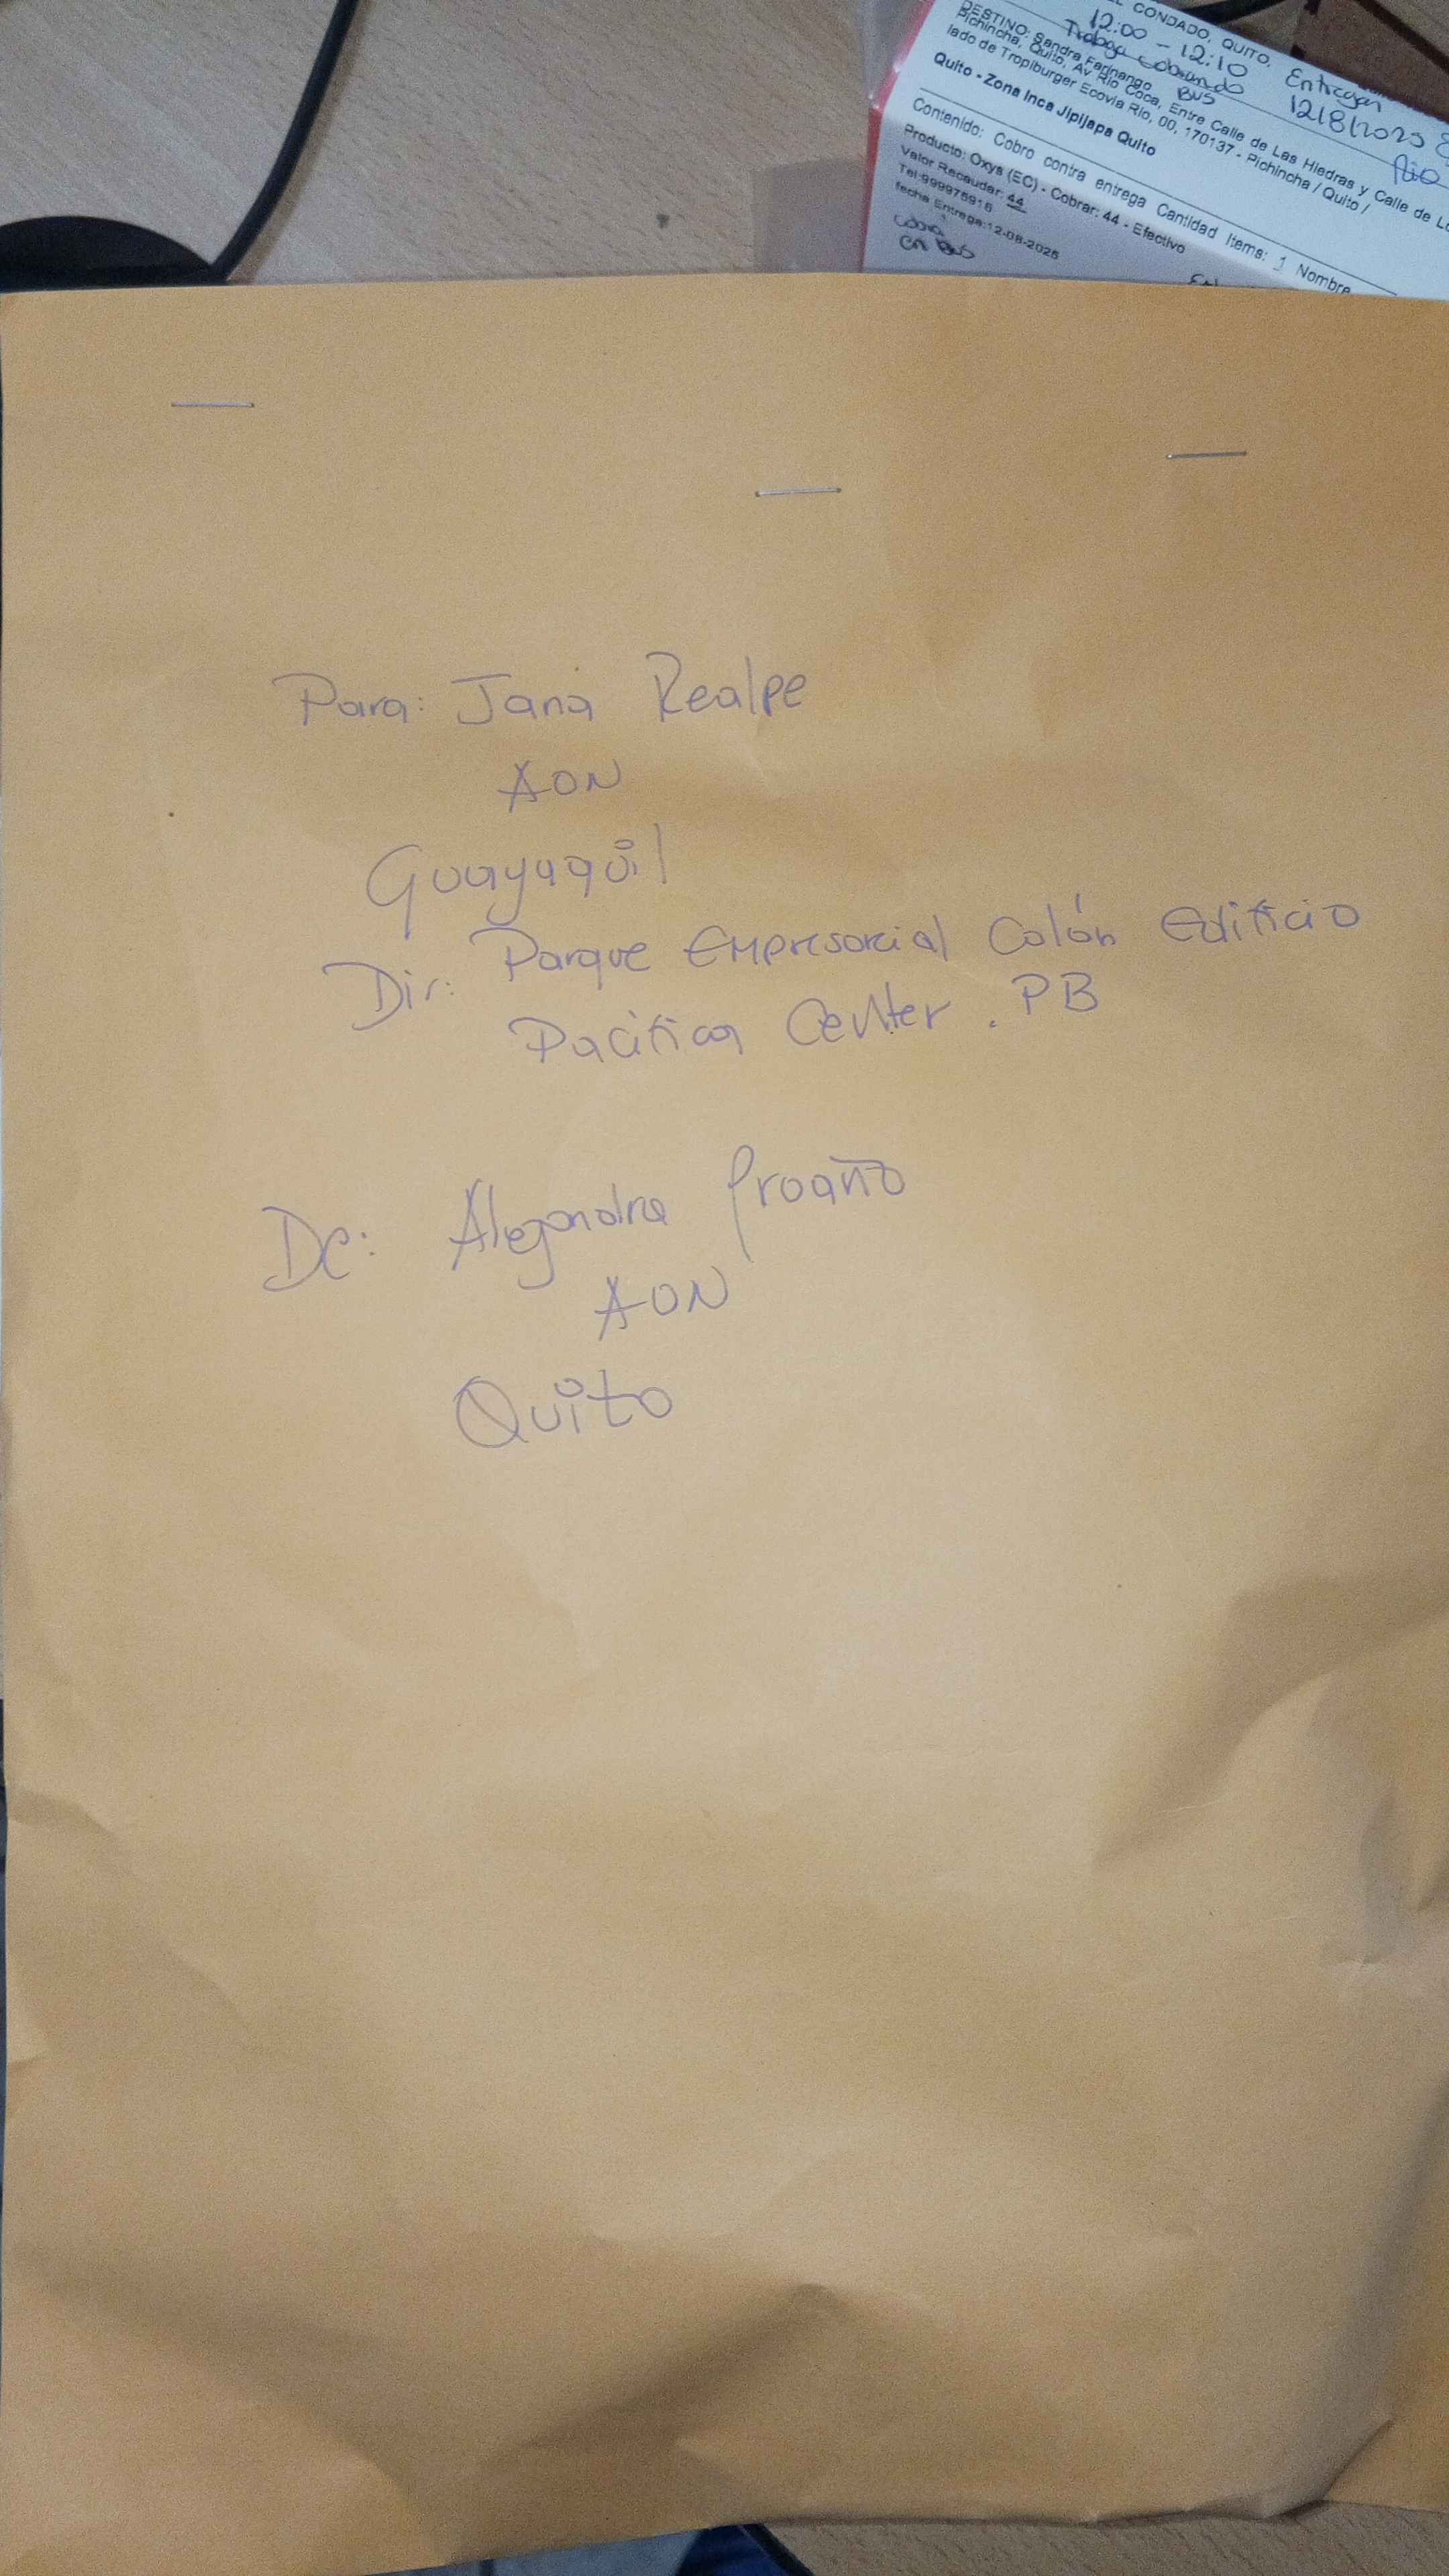 EL CONDADO, QUITO,
12:00 - 12:10
Entregar
Trabaja cobrando
BUS
12/8/2025
Rio
DESTINO: Sandra Farinango
Pichincha, Quito, Av Rio Coca, Entre Calle de Las Hiedras y Calle de Lo
lado de Tropiburger Ecovia Rio, 00, 170137 - Pichincha / Quito /
Quito - Zona Inca Jipijapa Quito
Contenido: Cobro contra entrega Cantidad Items: 1 Nombre
Producto: Oxys (EC) - Cobrar: 44 - Efectivo
Valor Recaudar: 44
Tel:999975916
fecha Entrega:12-08-2025
en Bus
Para: Jana Realpe
AON
Guayaquil
Dir: Parque Empresarial Colón Edificio
Pacifica Center. PB
De: Alejandra Proaño
AON
Quito